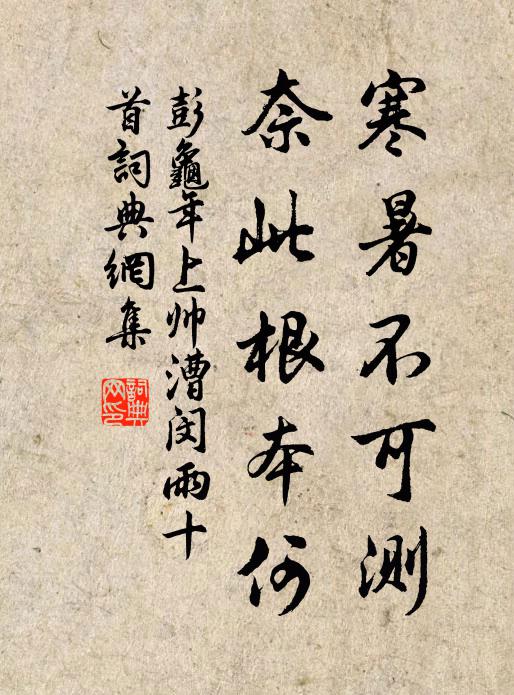 寒暑不可測
奈此根本何
彭龜年上帅漕闵雨十
首詞典網集
詞典网印